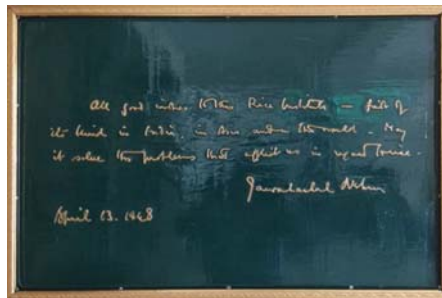 All good wishes to this Rice Institute - first of
its kind in India, in Asia and in the world. May
it solve the problems that afflict us in regard to rice.
Jawaharlal Nehru
April 13. 1948